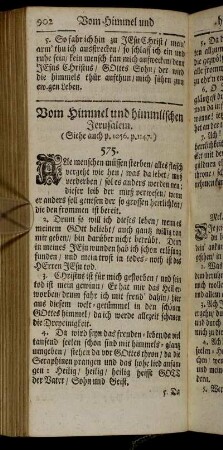 902 Vom Himmel und
5. So fahr ich hin zu JEsu Christ / mein
arm' thu ich ausstrecken / so schlaf ich ein und
ruhe fein / kein mensch kan mich aufwecken / denn
JEsus Christus / GOttes Sohn / der wird
die himmels thür aufthun / mich führn zum
ewgen Leben.
Vom Himmel und himmlischen
Jerusalem.
(Siehe auch p. 1036. p. 1147.)
575.
ALle menschen müssen sterben / alles fleisch
vergeht wie heu / was da lebet / muß
verderben / sol es anders werden neu:
dieser leib der muß verwesen / wenn
er anders soll genesen der so grossen herrlichkeit /
die den frommen ist bereit.
2. Drum so will ich dieses leben / wenn es
meinem GOtt beliebt / auch gantz willig von
mir geben / bin darüber nicht betrübt. Denn
in meines JEsu wunden hab ich schon erlösung
funden / und mein trost in todes-noth ist des
HErren JEsu tod.
3. Christus ist für mich gestorben / und sein
tod ist mein gewinn / Er hat mir das Heil er-
worben / drum fahr ich mit freud' dahin / hier
aus diesem welt-getümmel in den schönen
GOttes himmel / da ich werde allezeit sehen
die Dreyeinigkeit.
4. Da wird seyn das freuden-leben / da viel
tausend seelen schon sind mit himmels-glantz
umgeben / stehen da vor GOttes thron / da die
Seraphinen prangen und das hohe lied anfan-
gen: Heilig / heilig / heilig heisst GOTT
der Vater / Sohn und Geist.
5. Da